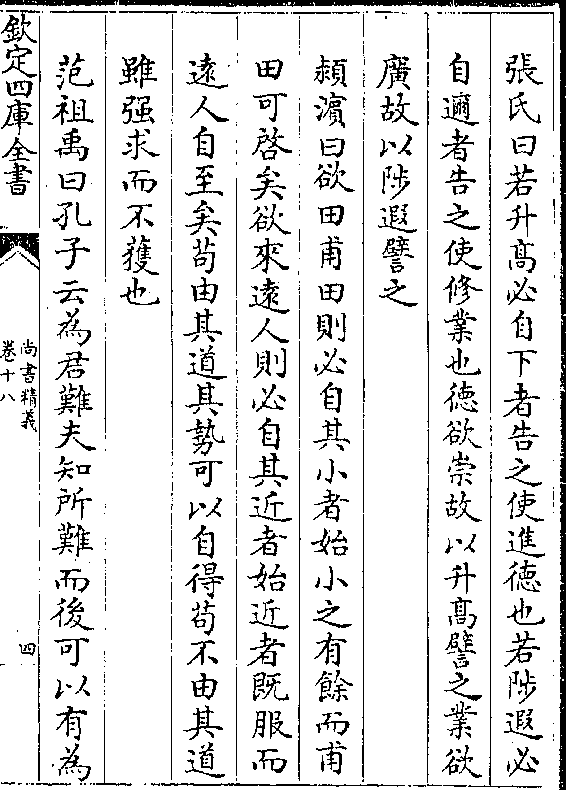 張氏曰若升髙必自下者告之使進徳也若陟遐必
自邇者告之使修業也徳欲崇故以升髙譬之業欲
廣故以陟遐譬之
頴濵曰欲田甫田則必自其小者始小之有餘而甫
田可啓矣欲來遠人則必自其近者始近者既服而
逺人自至矣苟由其道其勢可以自得苟不由其道
雖强求而不獲也
范祖禹曰孔子云為君難夫知所難而後可以有為
欽定四庫全書
尚書精義
卷十八
四